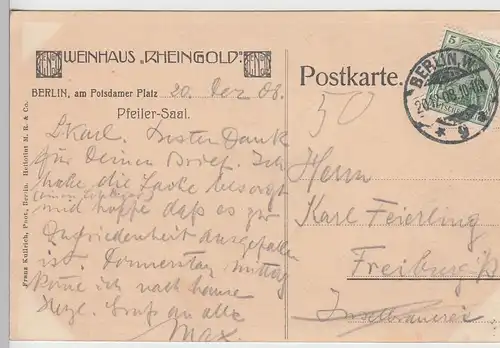 WEINHAUS „RHEINGOLD"
BERLIN, am Potsdamer Platz
20. Dez 08.
Pfeiler-Saal.
L. Karl. Besten Dank
für Deinen Brief. Ich
habe die Sache besorgt
und hoffe daß es zur
Zufriedenheit ausgefallen
ist. Donnerstag mittag
kome ich nach hause
Herzl. Gruß an alle
Max.
Franz Kullrich, Phot., Berlin. Heliotint M. R. & Co.
Postkarte.
50
5
BERLIN, W.
9
Herrn
Karl Feierling
Freiburg i/B
Inselbrauerei